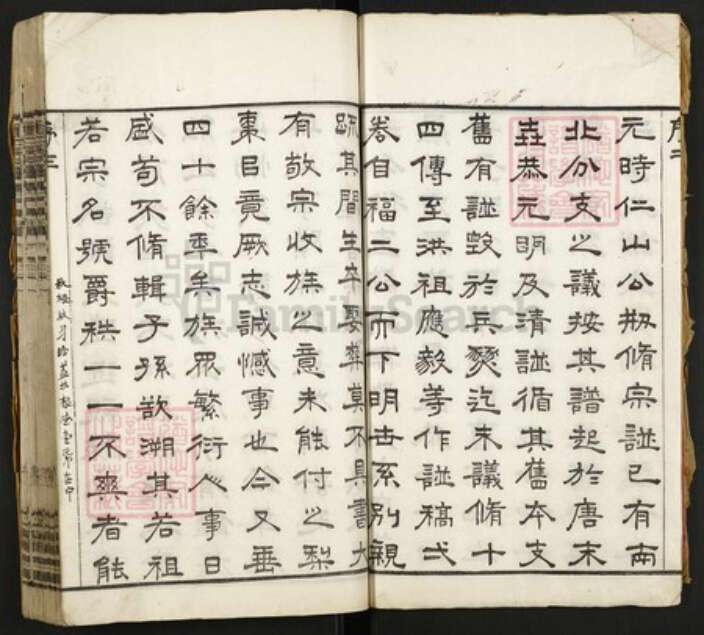 序二
元時仁山公剏脩宗譜已有南
北分支之議按其譜起於唐末
壵恭元明及清譜循其舊本支
舊有譜毀於兵燹迄未議脩十
四傳至洪祖應毅等作譜稿弍
卷自福二公而下明世系別親
疏其間生卒娶葬莫不具書大
有敬宗收族之意未能付之梨
棗臣竟厥志誠憾事也今又垂
四十餘年矣族眾繁衍人事日
盛苟不脩輯子孫欲溯其若祖
若宗名號爵秩一一不爽者能
序三
FamilySearch